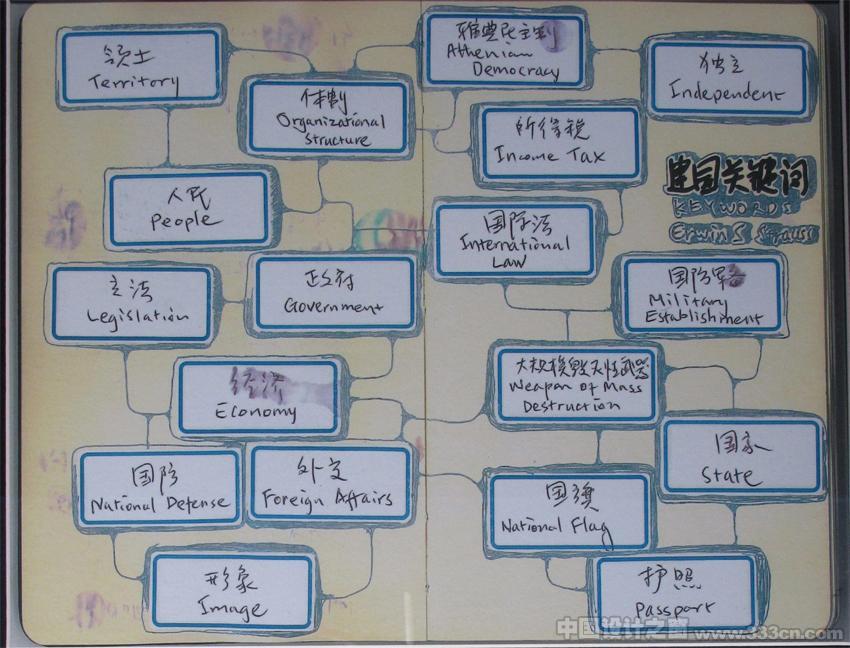 领土
Territory
体制
Organizational
Structure
人民
People
立法
Legislation
政府
Government
经济
Economy
国防
National Defense
外交
Foreign Affairs
形象
Image
雅典民主制
Athenian
Democracy
独立
Independent
所得税
Income Tax
建国关键词
KEYWORDS
Erwin S Strauss
国际法
International
Law
国防军备
Military
Establishment
大规模毁灭性武器
Weapon of Mass
Destruction
国家
State
国旗
National Flag
护照
Passport
中国设计之窗 www.333cn.com